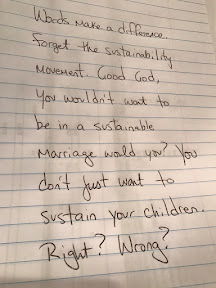 Words make a difference.
Forget the sustainability
Movement. Good God,
You wouldn't want to
be in a sustainable
Marriage would you? You
don't just want to
sustain your children.
Right? Wrong?